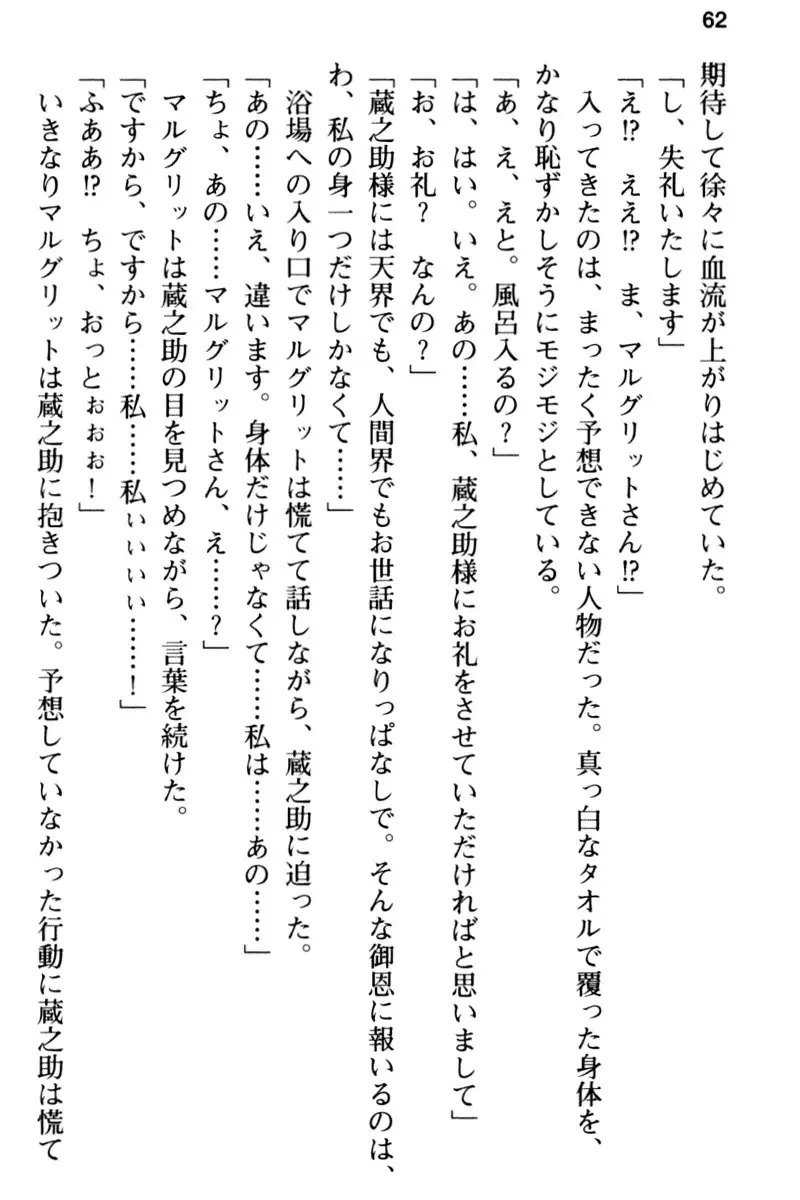 62
期待して徐々に血流が上がりはじめていた。
「し、失礼いたします」
「え!?　ええ!?　ま、マルグリットさん!?」
入ってきたのは、まったく予想できない人物だった。真っ白なタオルで覆った身体を、
かなり恥ずかしそうにモジモジとしている。
「あ、え、えと。風呂入るの？」
「は、はい。いえ。あの……私、蔵之助様にお礼をさせていただければと思いまして」
「お、お礼？　なんの？」
「蔵之助様には天界でも、人間界でもお世話になりっぱなしで。そんな御恩に報いるのは、
わ、私の身一つだけしかなくて……」
浴場への入り口でマルグリットは慌てて話しながら、蔵之助に迫った。
「あの……いえ、違います。身体だけじゃなくて……私は……あの……」
「ちょ、あの……マルグリットさん、え……？」
マルグリットは蔵之助の目を見つめながら、言葉を続けた。
「ですから、ですから……私……私ぃぃぃぃ……！」
「ふああ!?　ちょ、おっとぉぉぉ！」
いきなりマルグリットは蔵之助に抱きついた。予想していなかった行動に蔵之助は慌て